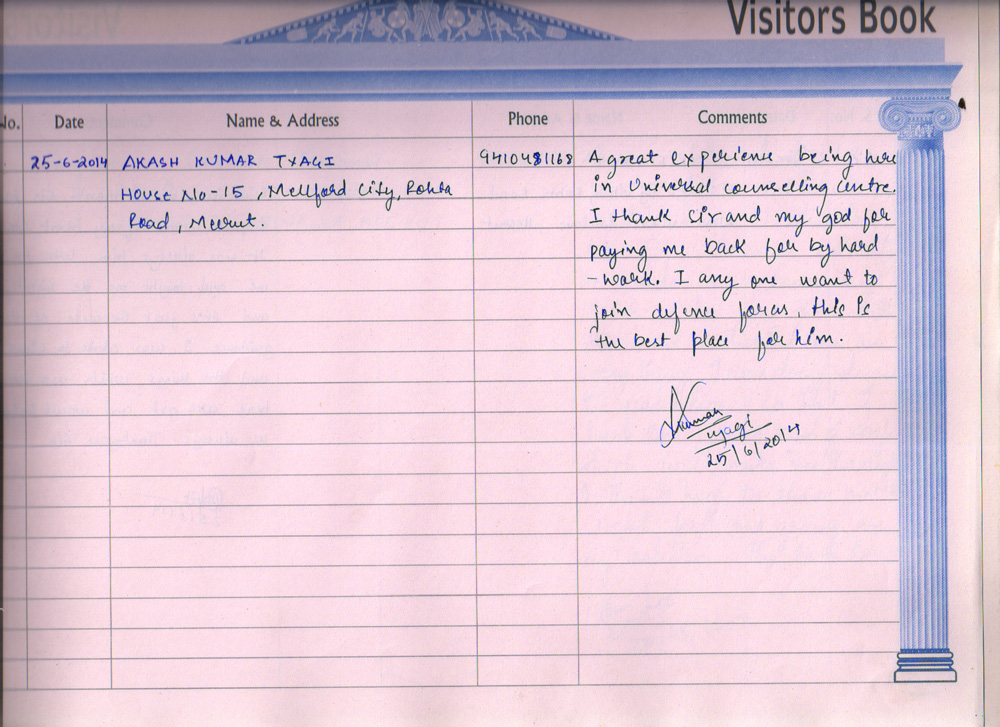 Visitors Book
No. Date Name & Address Phone Comments
25-6-2014 AKASH KUMAR TYAGI 9410481168 A great experience being here
House No-15, Mellford City, Rohta in Universal counselling centre.
Road, Meerut. I thank sir and my god for
paying me back for by hard
-work. I any one want to
join defence forces, this is
the best place for him.
Kumar
Tyagi
25/6/2014